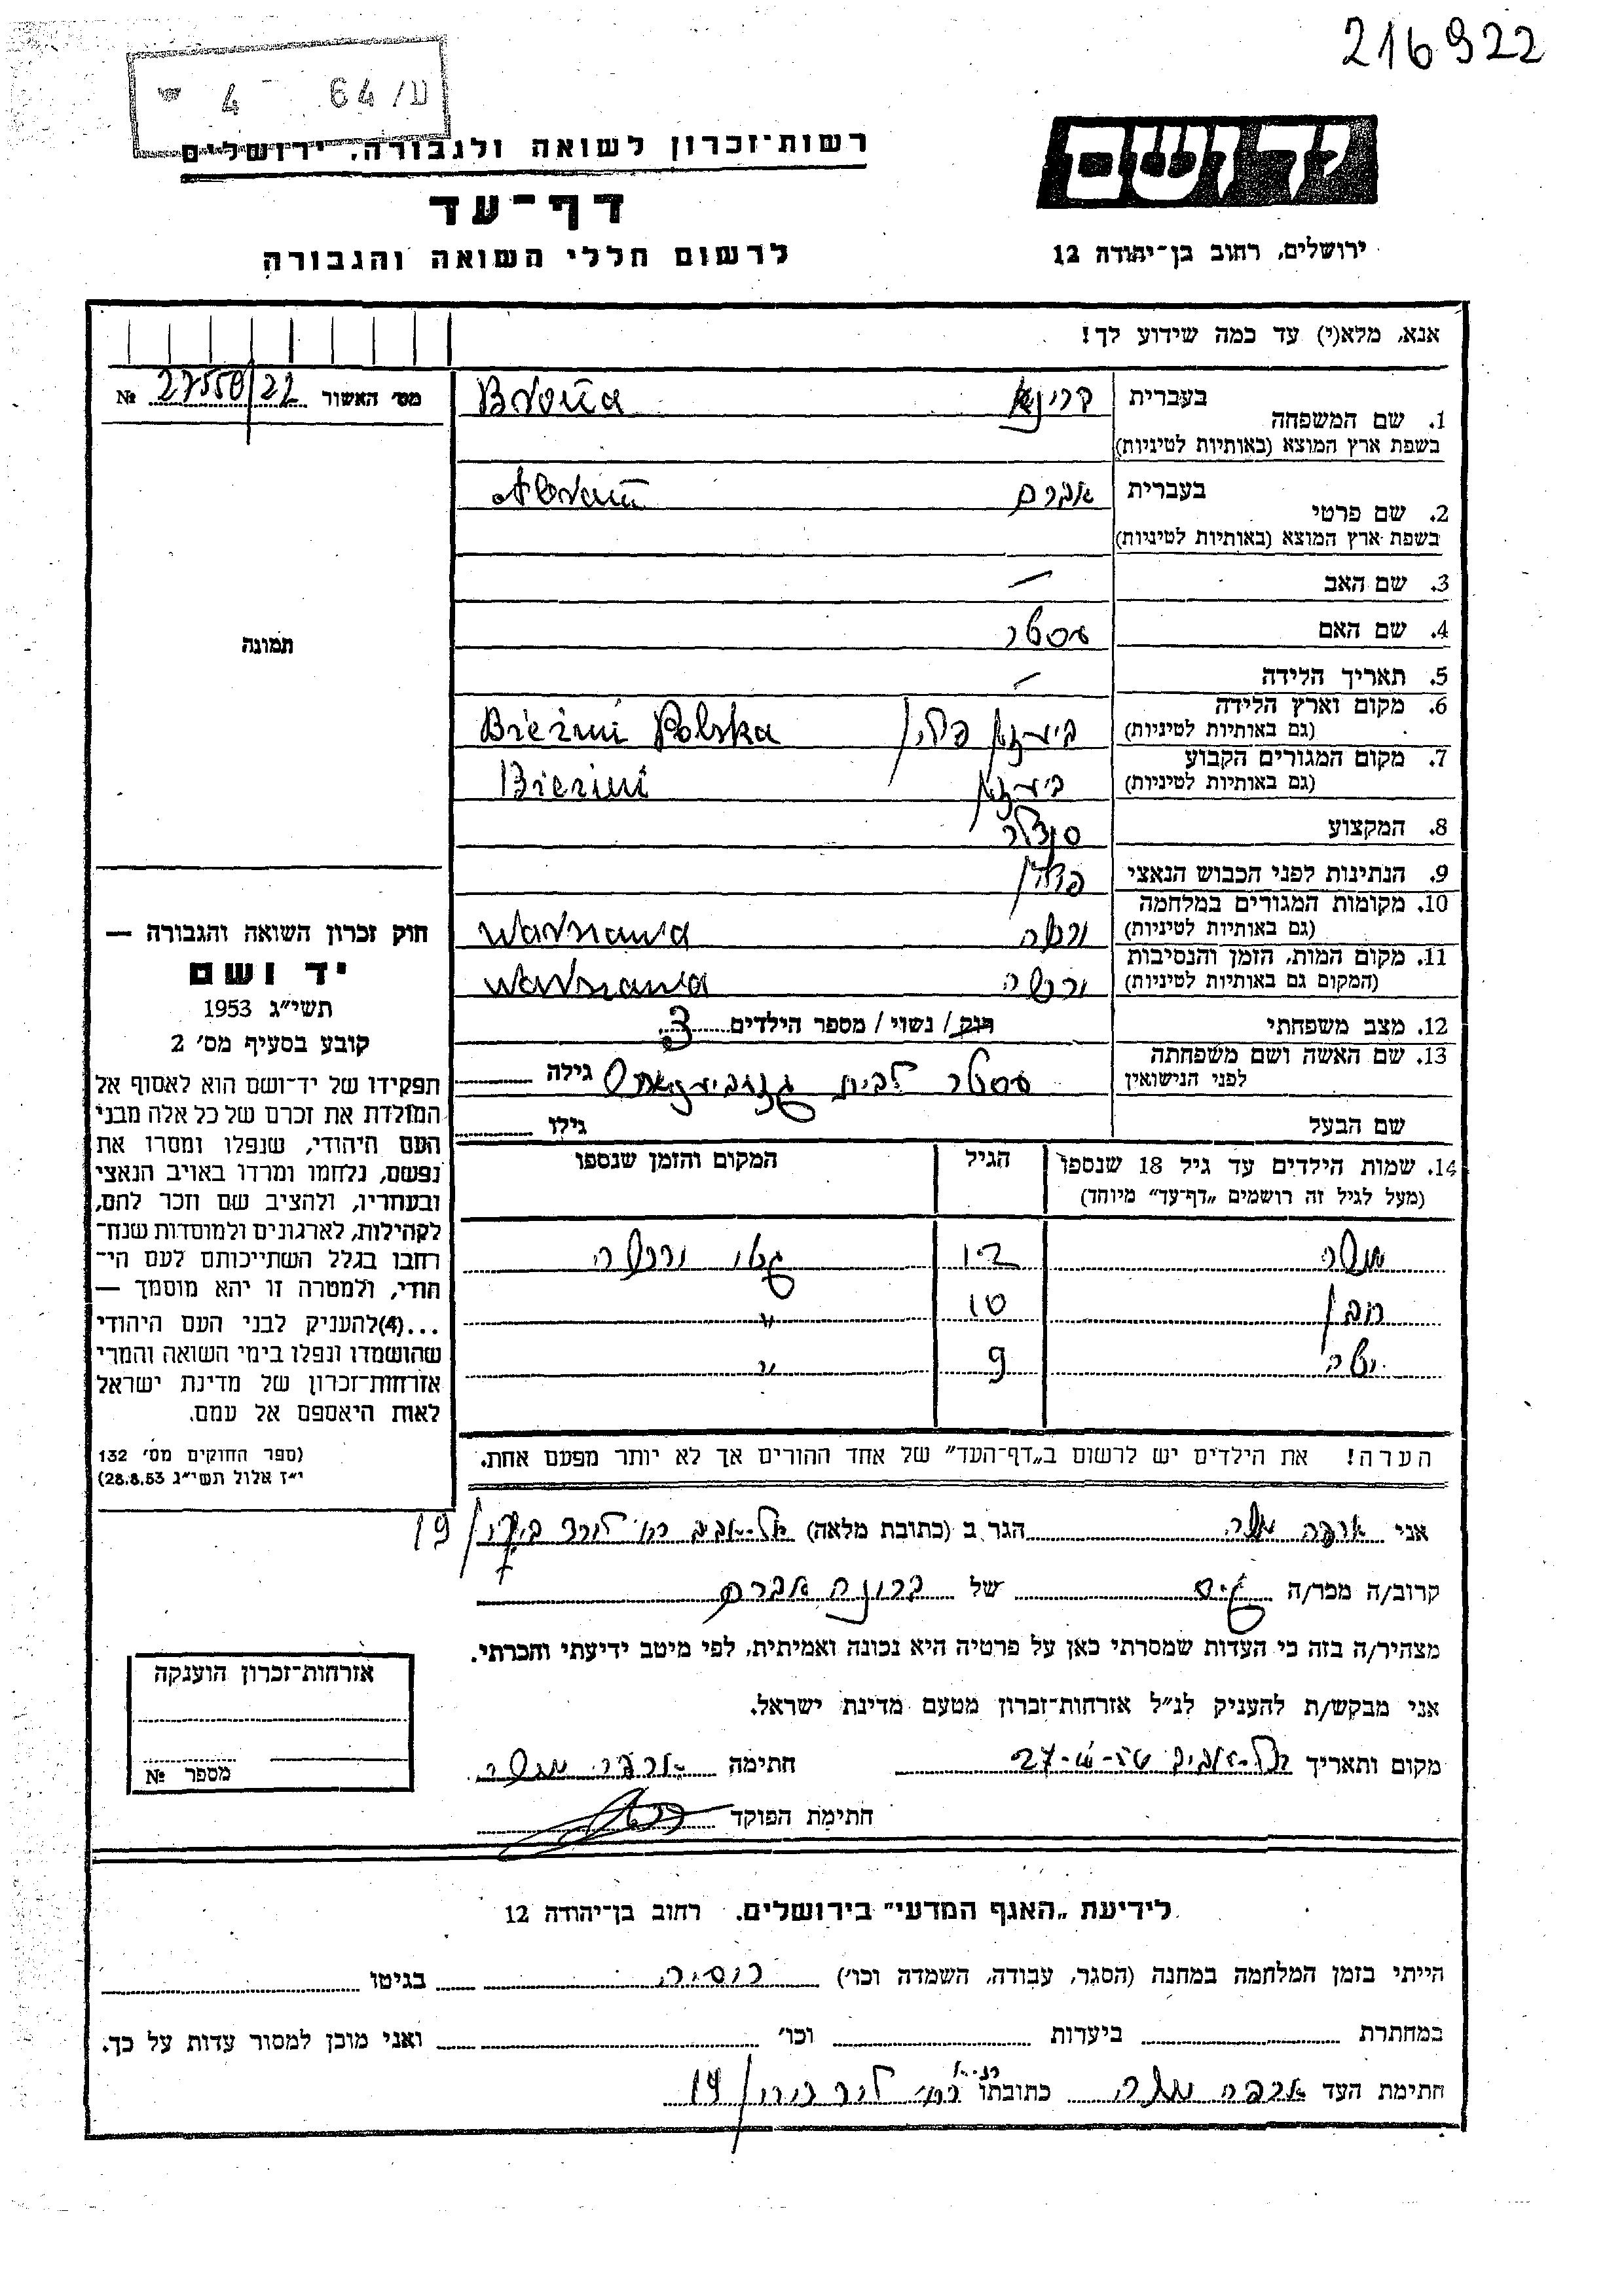 216922
ע/ 64 - 4
יד ושם
רשות־זכרון לשואה ולגבורה, ירושלים
דף־עד
לרשום חללי השואה והגבורה
ירושלים, רחוב בן־יהודה 12
אנא, מלא(י) עד כמה שידוע לך!
מס׳ האשור 27550/22 №
1. שם המשפחה
בעברית Brona
בשפת ארץ המוצא (באותיות לטיניות)
2. שם פרטי
בעברית אברם Abram
בשפת ארץ המוצא (באותיות לטיניות)
3. שם האב —
4. שם האם אסטר
5. תאריך הלידה —
6. מקום וארץ הלידה
(גם באותיות לטיניות) פולין Polska
7. מקום המגורים הקבוע
(גם באותיות לטיניות)
8. המקצוע סנדלר
9. הנתינות לפני הכבוש הנאצי פולין
10. מקומות המגורים במלחמה
(גם באותיות לטיניות) ורשה Warszawa
11. מקום המות, הזמן והנסיבות
(המקום גם באותיות לטיניות) ורשה Warszawa
12. מצב משפחתי רווק/ נשוי/ מספר הילדים 3
13. שם האשה ושם משפחתה
לפני הנישואין אסטר לבית גילה
שם הבעל גילו
14. שמות הילדים עד גיל 18 שנספו
(מעל לגיל זה רושמים „דף־עד” מיוחד)
הגיל
המקום והזמן שנספו
משה 12 גטו ורשה
10 ״
9 ״
הערה! את הילדים יש לרשום ב„דף־העד” של אחד ההורים אך לא יותר מפעם אחת.
תמונה
חוק זכרון השואה והגבורה —
יד ושם
תשי״ג 1953
קובע בסעיף מס׳ 2
תפקידו של יד־ושם הוא לאסוף אל
המולדת את זכרם של כל אלה מבני
העם היהודי, שנפלו ומסרו את
נפשם, נלחמו ומרדו באויב הנאצי
ובעוזריו, ולהציב שם וזכר להם,
לקהילות, לארגונים ולמוסדות שנח־
רבו בגלל השתייכותם לעם הי־
הודי, ולמטרה זו יהא מוסמך —
...(4)להעניק לבני העם היהודי
שהושמדו ונפלו בימי השואה והמרי
אזרחות־זכרון של מדינת ישראל
לאות היאספם אל עמם.
(ספר החוקים מס׳ 132
י״ז אלול תשי״ג 28.8.53)
אני משה הגר ב (כתובת מלאה) תל־אביב 19
קרוב/ה מכר/ה גיס של ברונה אברם
מצהיר/ה בזה כי העדות שמסרתי כאן על פרטיה היא נכונה ואמיתית, לפי מיטב ידיעתי והכרתי.
אני מבקש/ת להעניק לנ״ל אזרחות־זכרון מטעם מדינת ישראל.
מקום ותאריך תל־אביב חתימה משה
חתימת הפוקד
אזרחות־זכרון הוענקה
מספר №
לידיעת „האגף המדעי” בירושלים. רחוב בן־יהודה 12
הייתי בזמן המלחמה במחנה (הסגר, עבודה, השמדה וכו׳) רוסיה בגיטו
במחתרת ביערות וכו׳ ואני מוכן למסור עדות על כך.
חתימת העד משה כתובתו 19